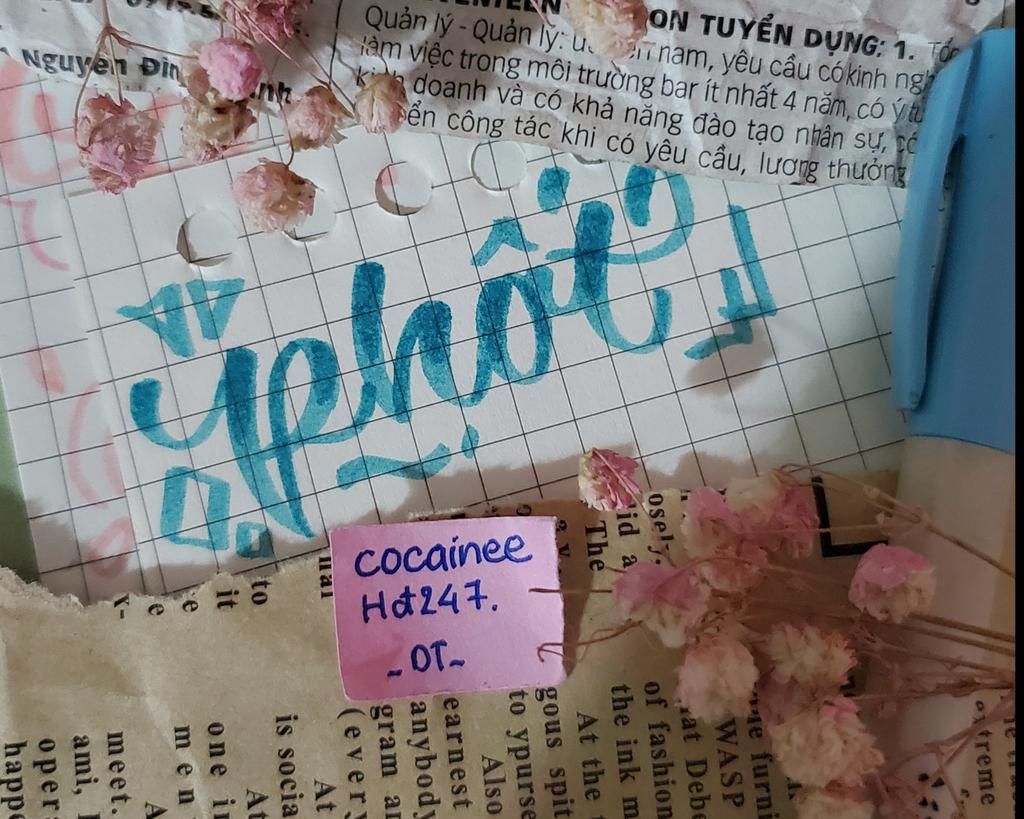 ON TUYỂN DỤNG: 1.
Quản lý - Quản lý: nam, yêu cầu có kinh
làm việc trong môi trường bar ít nhất 4 năm, có ý
kinh doanh và có khả năng đào tạo nhân sự, có
công tác khi có yêu cầu, lương thưởng
Nguyễn
phốt
cocainee
Hot247.
_OT~
to
it
e
e
The
meet.
ami,
oper
happ
one i
men
A
is socia
At
At
(ever
gram
anybody
earnest
Also
to ypurse
gous spit
At the t
the ink m
of fashion
at Deb
WASP
furni